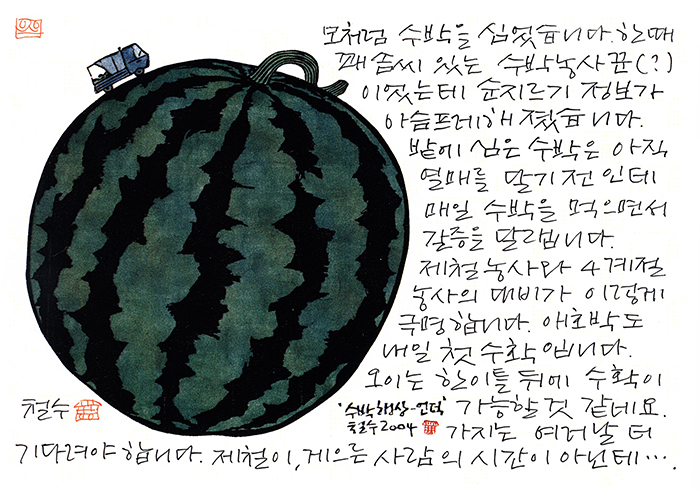 모처럼 수박을 심었습니다. 한때
꽤 솜씨 있는 수박농사꾼(?)
이었는데 순지르기 정보가
아슴프레해 졌습니다.
밭에 심은 수박은 아직
열매를 달기 전 인데
매일 수박을 먹으면서
갈증을 달랩니다.
제철농사와 4계절
농사의 대비가 이렇게
극명합니다. 애호박도
내일 첫 수확입니다.
오이는 한이틀 뒤에 수확이
가능할 것 같네요.
가지는 여러날 더
기다려야 합니다. 제철이, 게으른 사람의 시간이 아닌데….
철수
'수박행상-언덕'
철수 2004